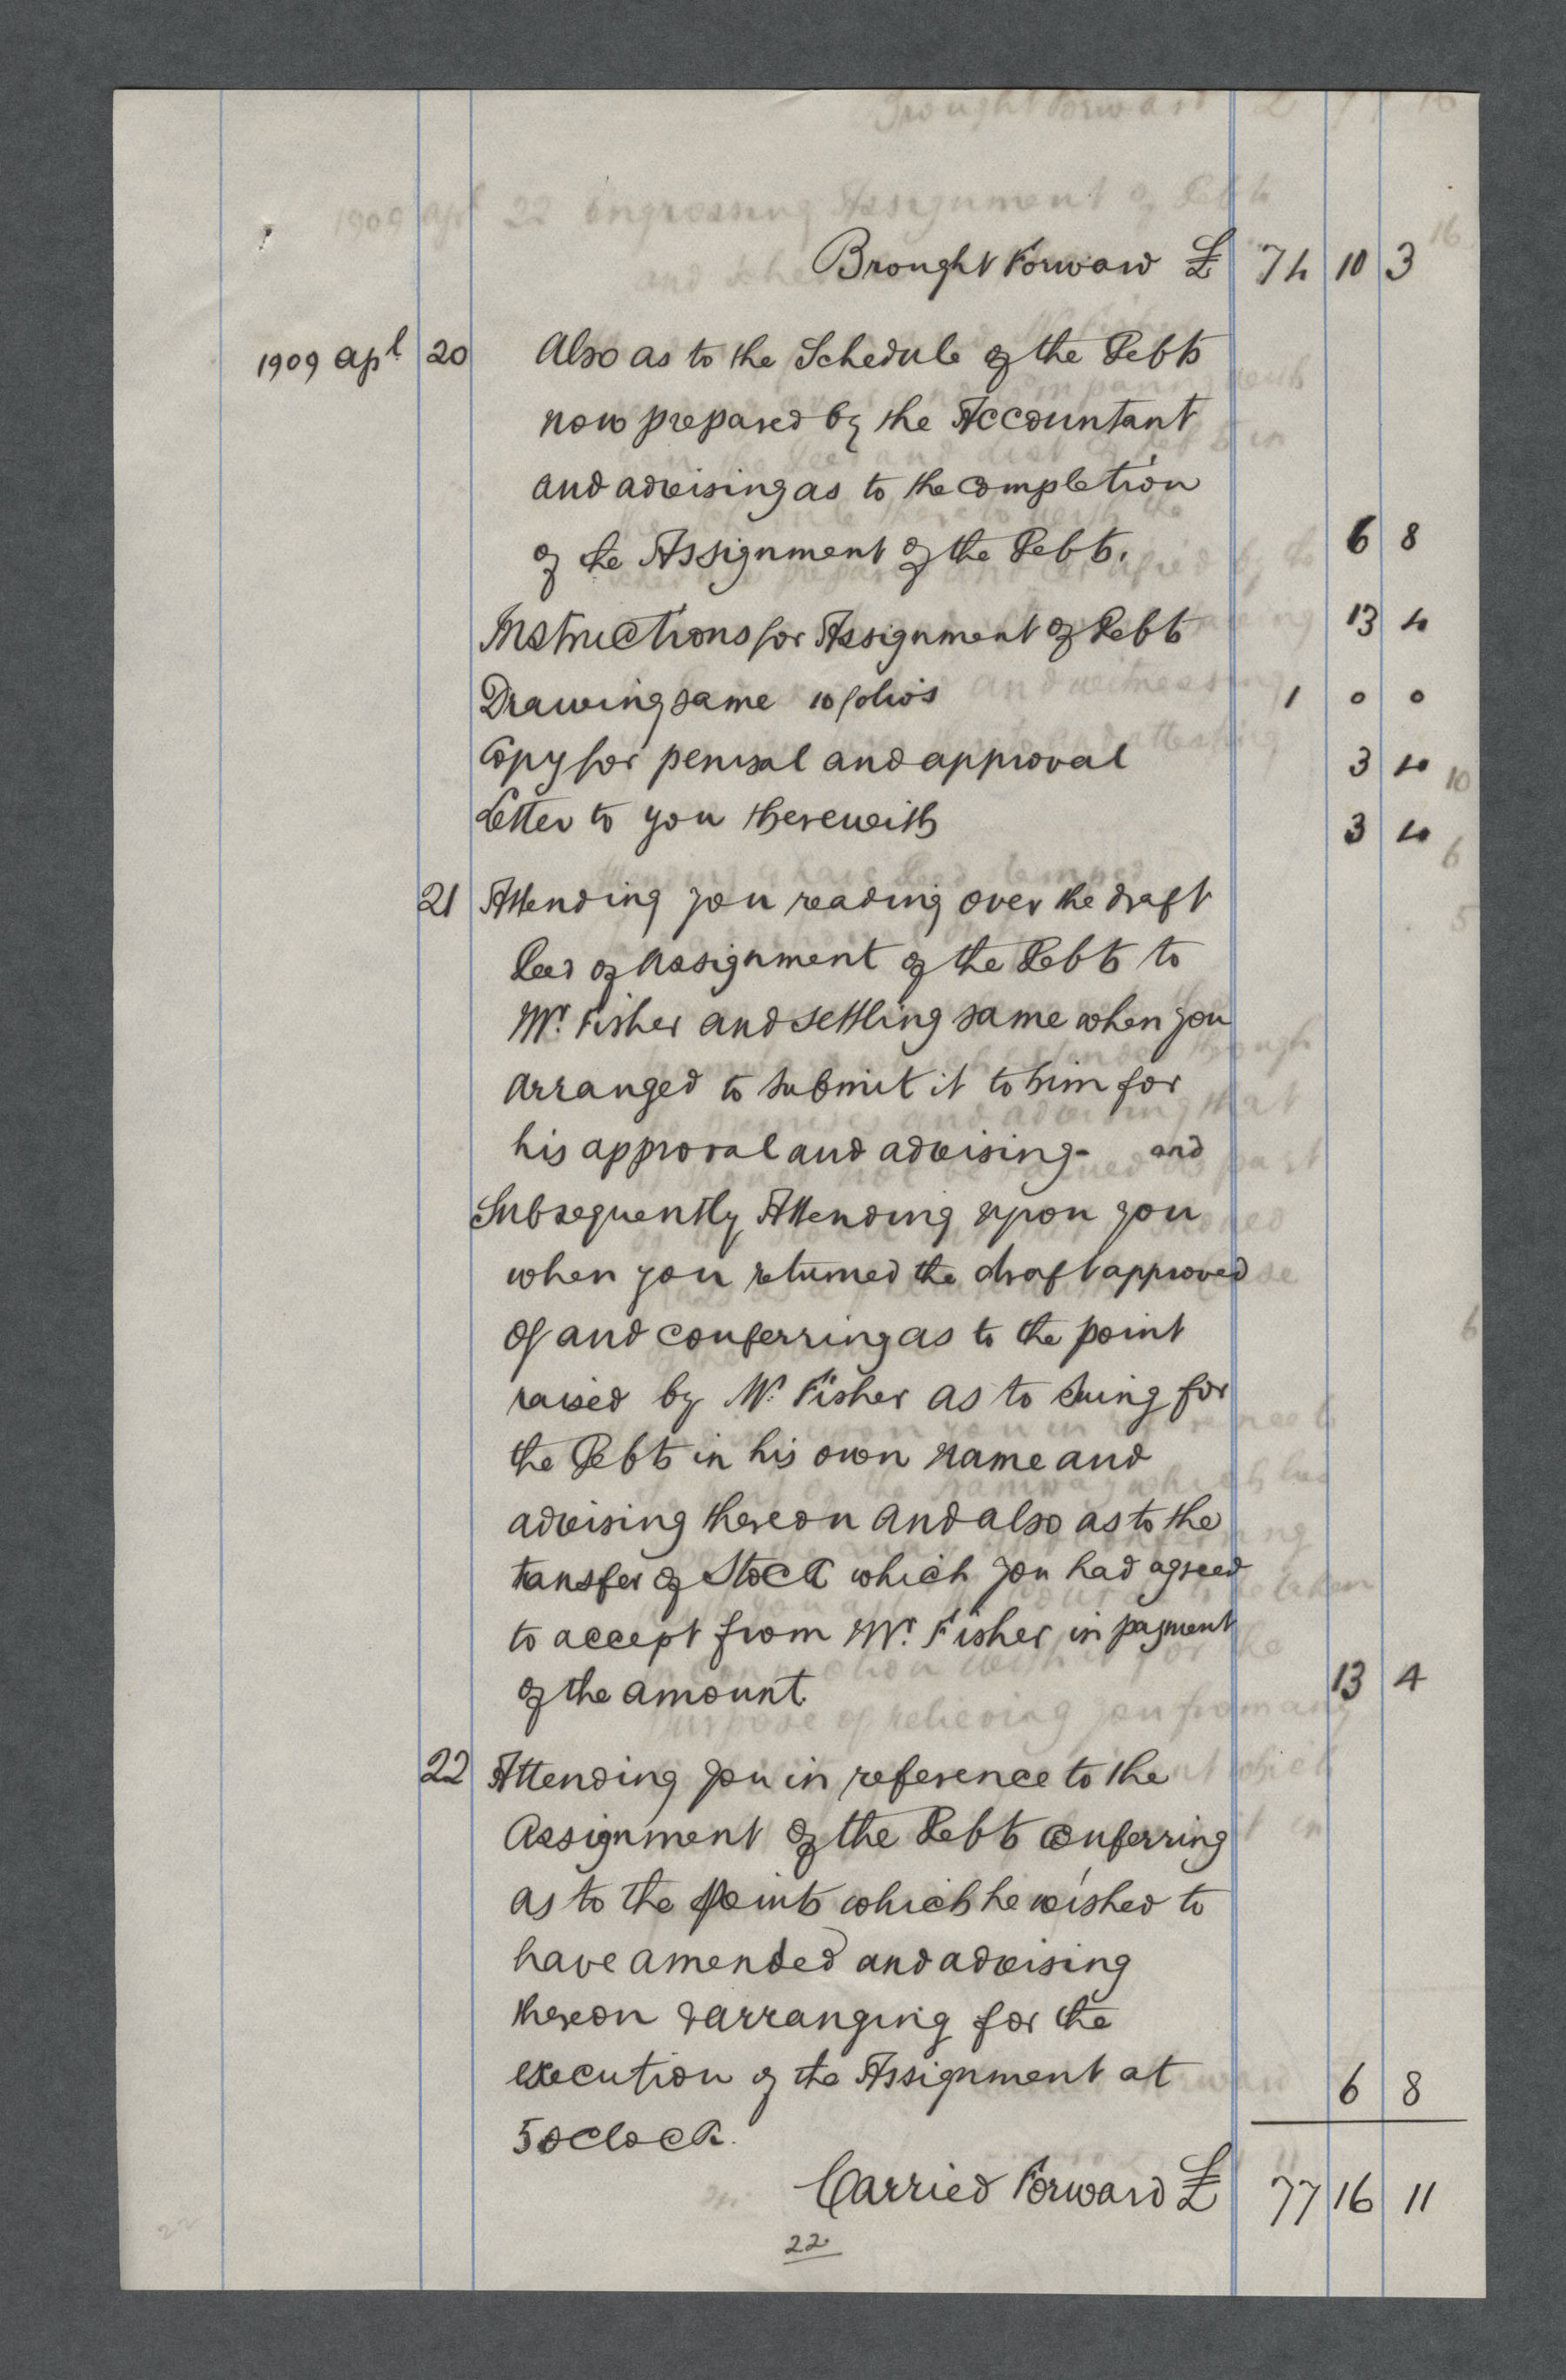 Brought Forward £ 74 10 3
1909 Apl 20 Also as to the Schedule of the Debts
now prepared by the Accountant
and advising as to the completion
of the Assignment of the Debts. 6 8
Instructions for Assignment of Debts 13 4
Drawing same 10 folios 1 0 0
Copy for perusal and approval 3 4
Letter to you therewith 3 4
21 Attending you reading over the draft
Deed of Assignment of the Debts to
Mr. Fisher and settling same when you
arranged to submit it to him for
his approval and advising - and
Subsequently Attending upon you
when you returned the draft approved
of and conferring as to the point
raised by Mr. Fisher as to suing for
the Debts in his own name and
advising thereon and also as to the
transfer of Stock which you had agreed
to accept from Mr. Fisher in payment
of the amount. 13 4
22 Attending you in reference to the
Assignment of the Debts conferring
as to the points which he wished to
have amended and advising
thereon & arranging for the
execution of the Assignment at 6 8
5 oclock.
Carried Forward £ 77 16 11
22